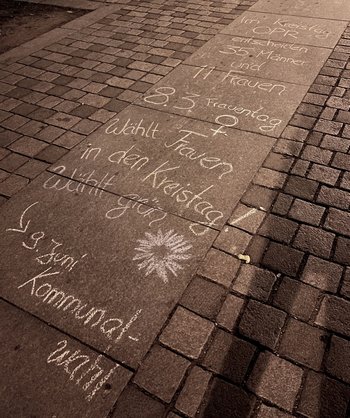 Im Kreistag
OPR
entscheiden
35 Männer
und
11 Frauen
8.3. Frauentag
♀
Wählt Frauen
in den Kreistag!
Wählt grün
→ 9. Juni
Kommunal-
wahl